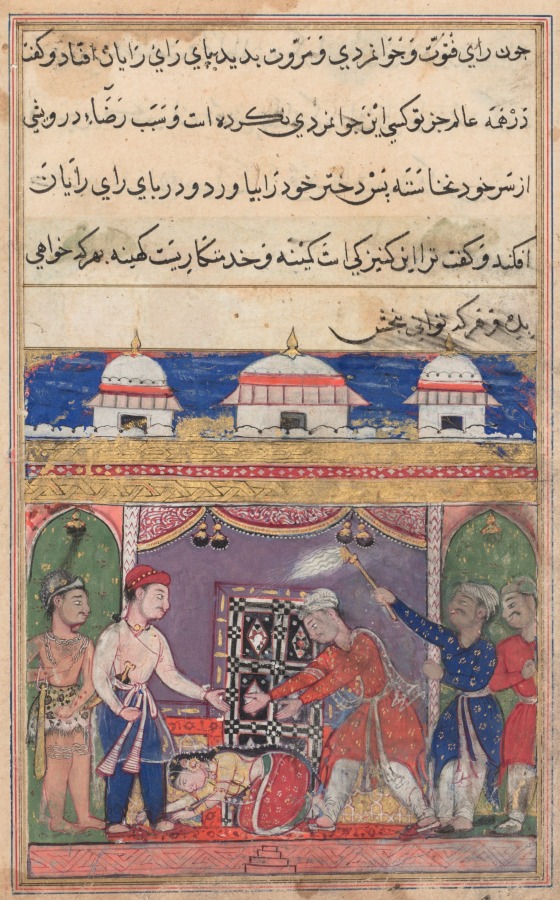 جون رای فتوّت و جوانمردی و مروت بدید بپای رای رایان افتاد و کفت
در همه عالم جز تو کسی این جوانمردی نکرده است و سبب رضاء درویشی
از سر خود نخاسته پس دختر خود را بیاورد و در بای رای رایان
افکند و کفت ترا این کنیزکی است کمینه و خدمتکاریست کهینه بهر که خواهی
بده و هر که توانی بخش